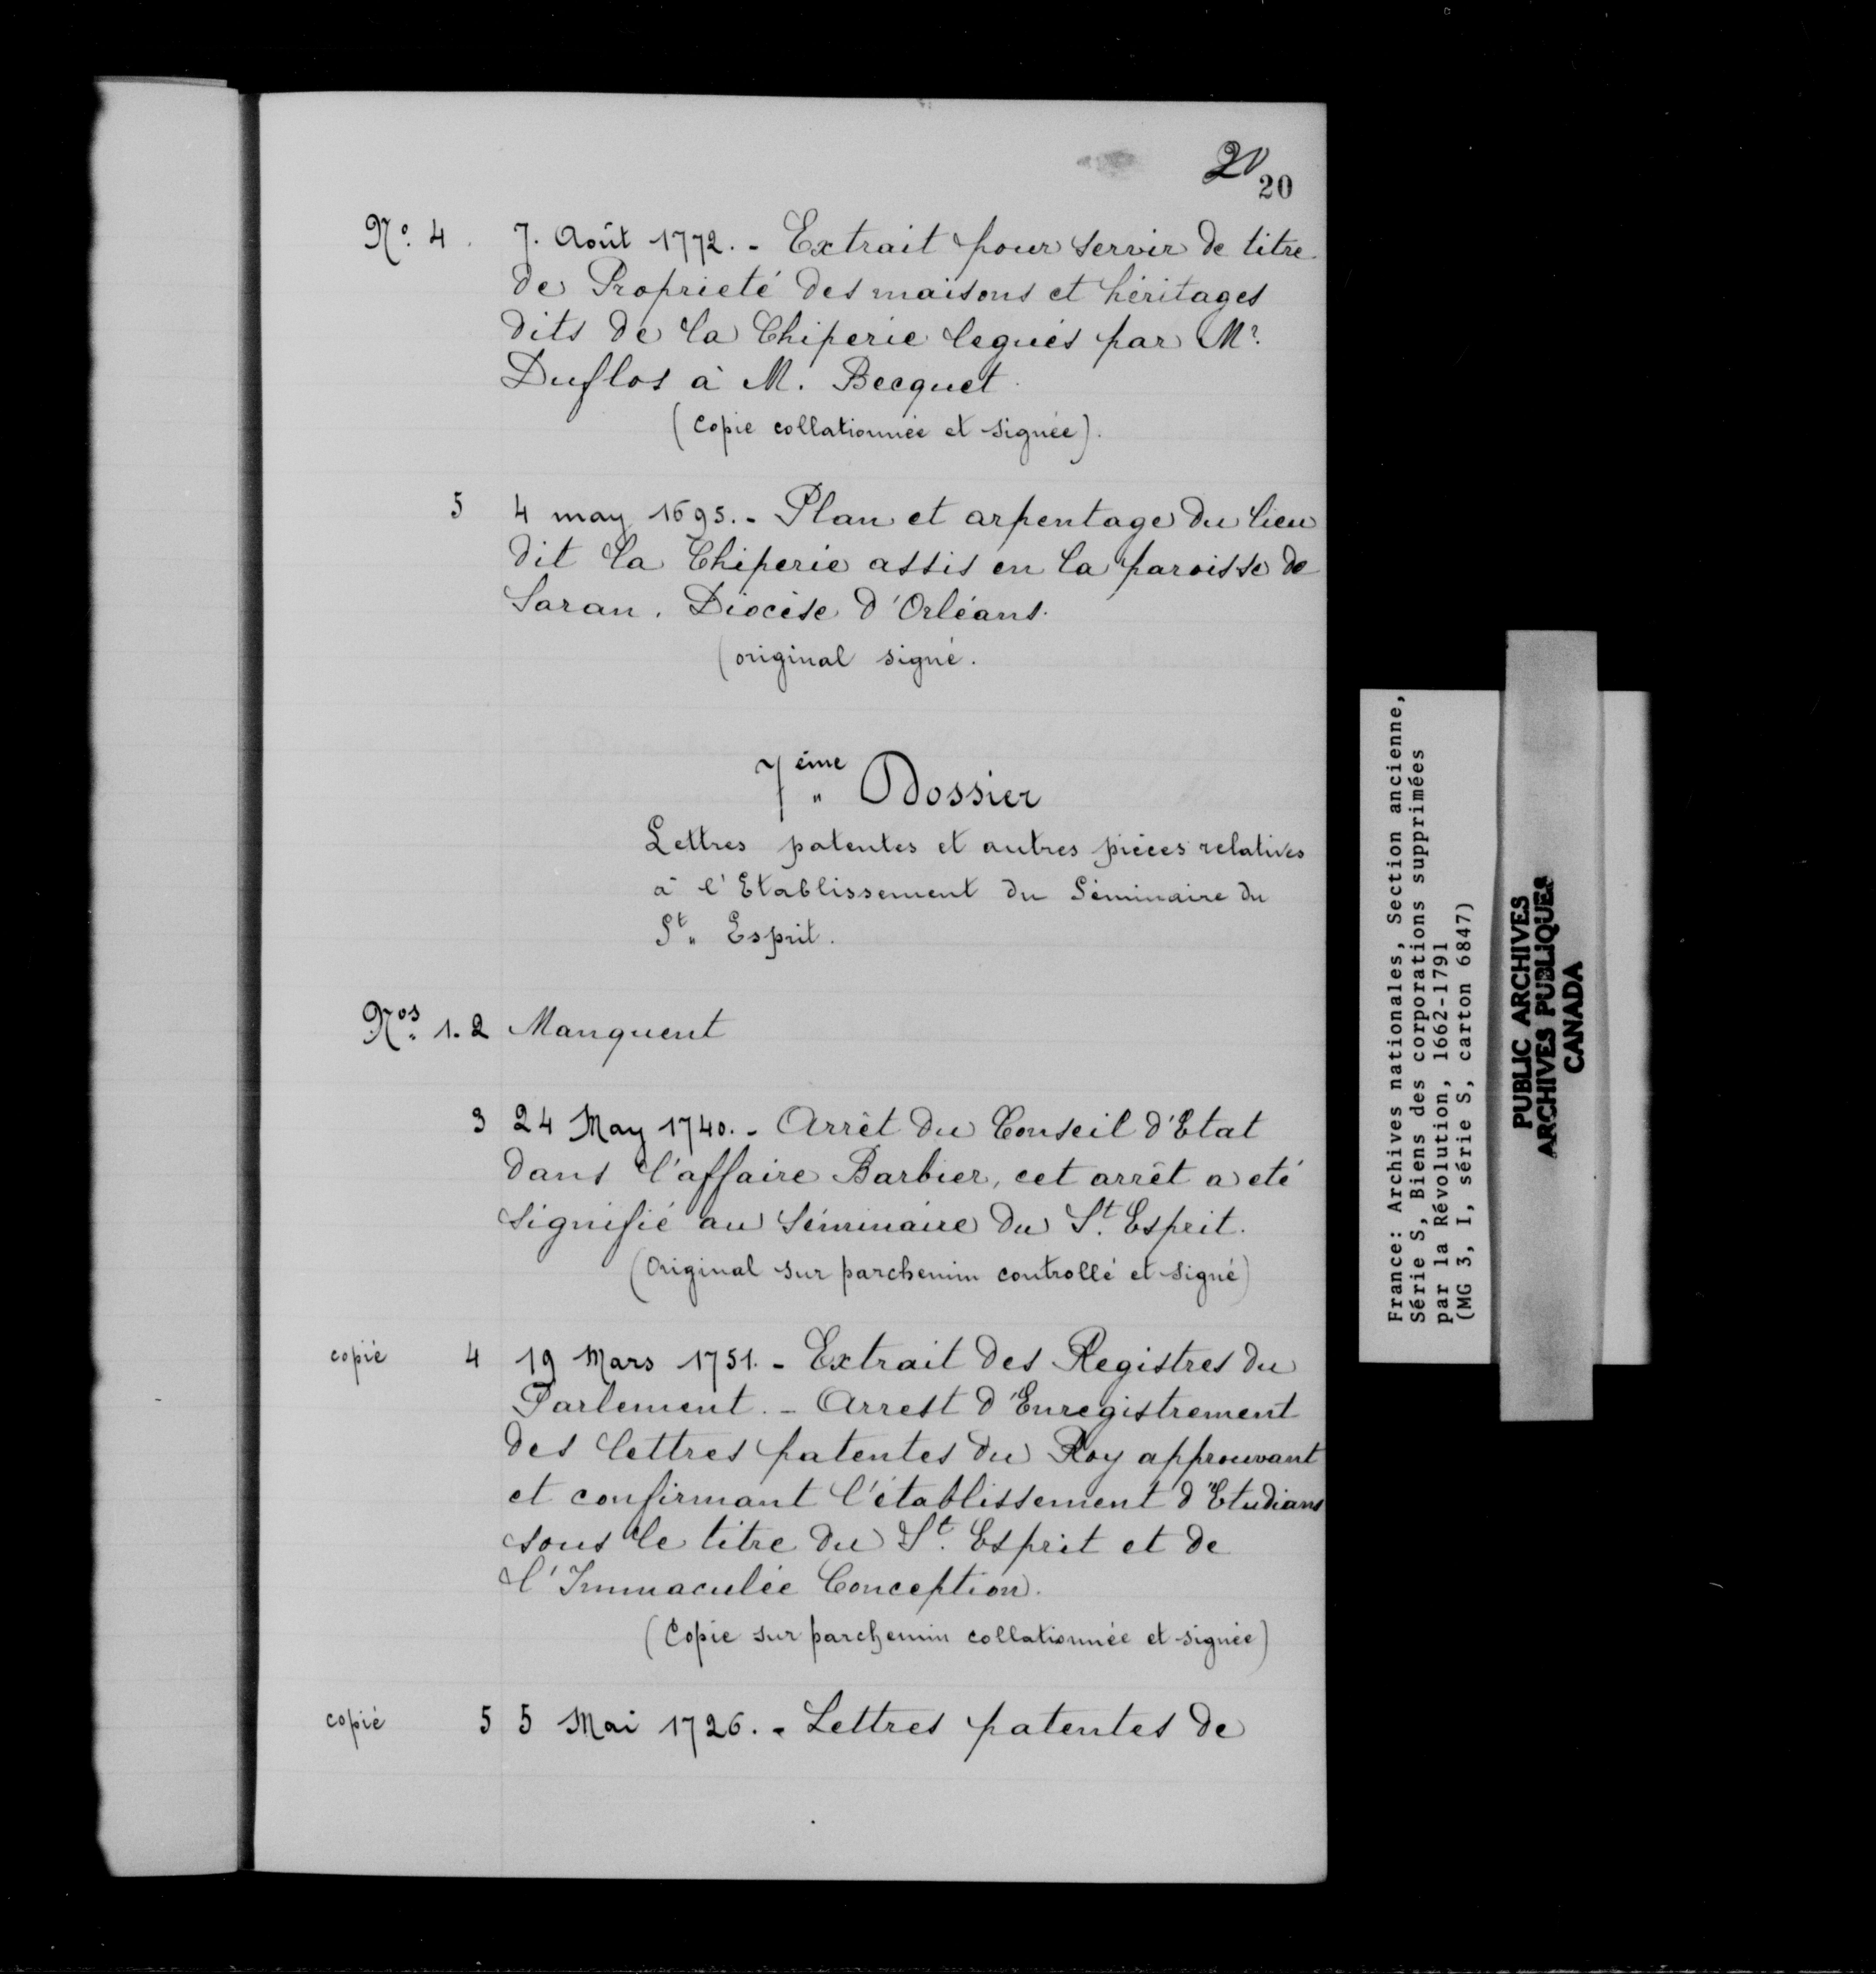 20
20
Nº. 4. 7. Août 1772. - Extrait pour servir de titre
de Proprieté des maisons et héritages
dits de la Chiperie legués par Mr.
Duflos à M. Becquet.
(Copie collationnée et signée).
5 4 may 1695. - Plan et arpentage du lieu
dit la Chiperie assis en la paroisse de
Saran. Diocèse d'Orléans.
(original signé.
7ème Dossier
Lettres patentes et autres pièces relatives
à l'Etablissement du Séminaire du
St. Esprit.
Nos. 1. 2 Manquent
3 24 May 1740. - Arrêt du Conseil d'Etat
dans l'affaire Barbier, cet arrêt a eté
signifié au Séminaire du St. Esprit.
(Original sur parchemin controllé et signé)
copié 4 19 Mars 1751. - Extrait des Registres du
Parlement. - Arrest d'Enregistrement
des lettres patentes du Roy approuvant
et confirmant l'établissement d'Etudians
sous le titre du St. Esprit et de
l'Immaculée Conception.
(Copie sur parchemin collationnée et signée)
copié 5 5 Mai 1726. - Lettres patentes de
France: Archives nationales, Section ancienne,
Série S, Biens des corporations supprimées
par la Révolution, 1662-1791
(MG 3, I, série S, carton 6847)
PUBLIC ARCHIVES
ARCHIVES PUBLIQUES
CANADA